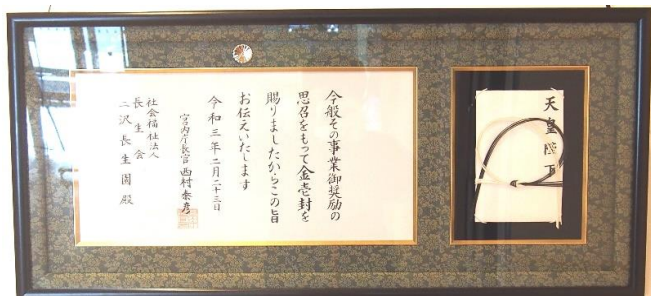 今般その事業御奨励の
思召をもって金壱封を
賜りましたからこの旨
お伝えいたします
令和三年二月二十三日
宮内庁長官 西村泰彦
社会福祉法人
長生会
二沢長生園殿
天皇陛下